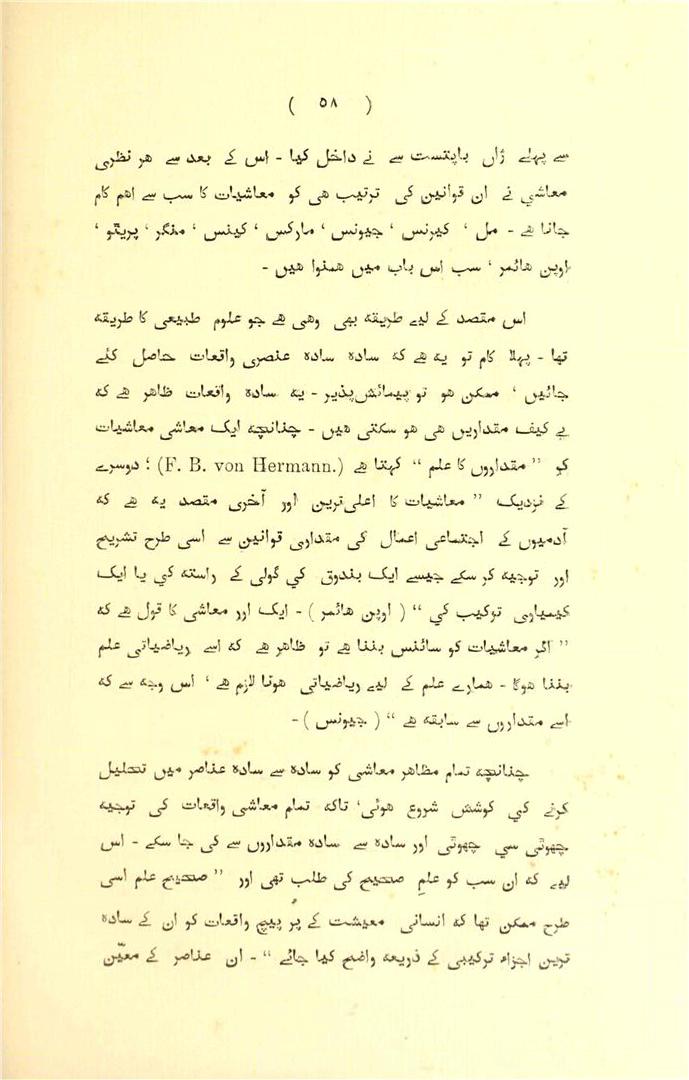 ( ۵۸ )
سے پہلے ژاں باپتست سے نے داخل کیا - اس کے بعد سے هر نظری
معاشی نے ان قوانین کی ترتیب هی کو معاشیات کا سب سے اهم کام
جانا هے - مل ، کیرنس ، جیونس ، مارکس ، کینس ، منگر ، پریٹو ،
اوپن هائمر ، سب اس باب میں همنوا هیں -
اس مقصد کے لیے طریقه بهی وهی هے جو علوم طبیعی کا طریقه
تها - پہلا کام تو یه هے که ساده ساده عنصری واقعات حاصل کئے
جائیں ، ممکن هو تو پیمائش‌پذیر - یه ساده واقعات ظاهر هے که
بے کیف مقداریں هی هو سکتی هیں - چنانچه ایک معاشی معاشیات
کو ” مقداروں کا علم “ کہتا هے (F. B. von Hermann.) ؛ دوسرے
کے نزدیک ” معاشیات کا اعلی‌ترین اور آخری مقصد یه هے که
آدمیوں کے اجتماعی اعمال کی مقداری قوانین سے اسی طرح تشریح
اور توجیه کر سکے جیسے ایک بندوق کي گولی کے راسته کي یا ایک
کیمیاوی ترکیب کي “ ( اوپن هائمر ) - ایک اور معاشی کا قول هے که
” اگر معاشیات کو سائنس بننا هے تو ظاهر هے که اسے ریاضیاتی علم
بننا هوگا - همارے علم کے لیے ریاضیاتی هونا لازم هے ، اس وجه سے که
اسے مقداروں سے سابقه هے “ ( جیونس ) -
چنانچه تمام مظاهر معاشی کو ساده سے ساده عناصر میں تحلیل
کرنے کي کوشش شروع هوئی، تاکه تمام معاشی واقعات کی توجیه
چهوٹی سي چهوٹی اور ساده سے ساده مقداروں سے کی جا سکے - اس
لیے که ان سب کو علمِ صحیح کی طلب تهی اور ” صحیح علم اسی
طرح ممکن تها که انسانی معیشت کے پُر پیچ واقعات کو ان کے ساده
ترین اجزاء ترکیبی کے ذریعه واضح کیا جائے “ - ان عناصر کے معیّن